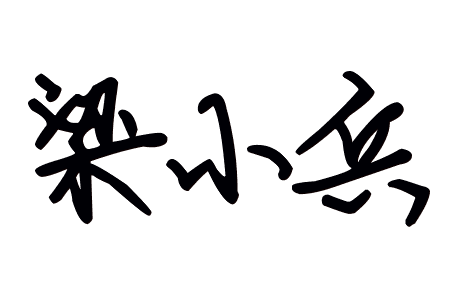 梁小兵